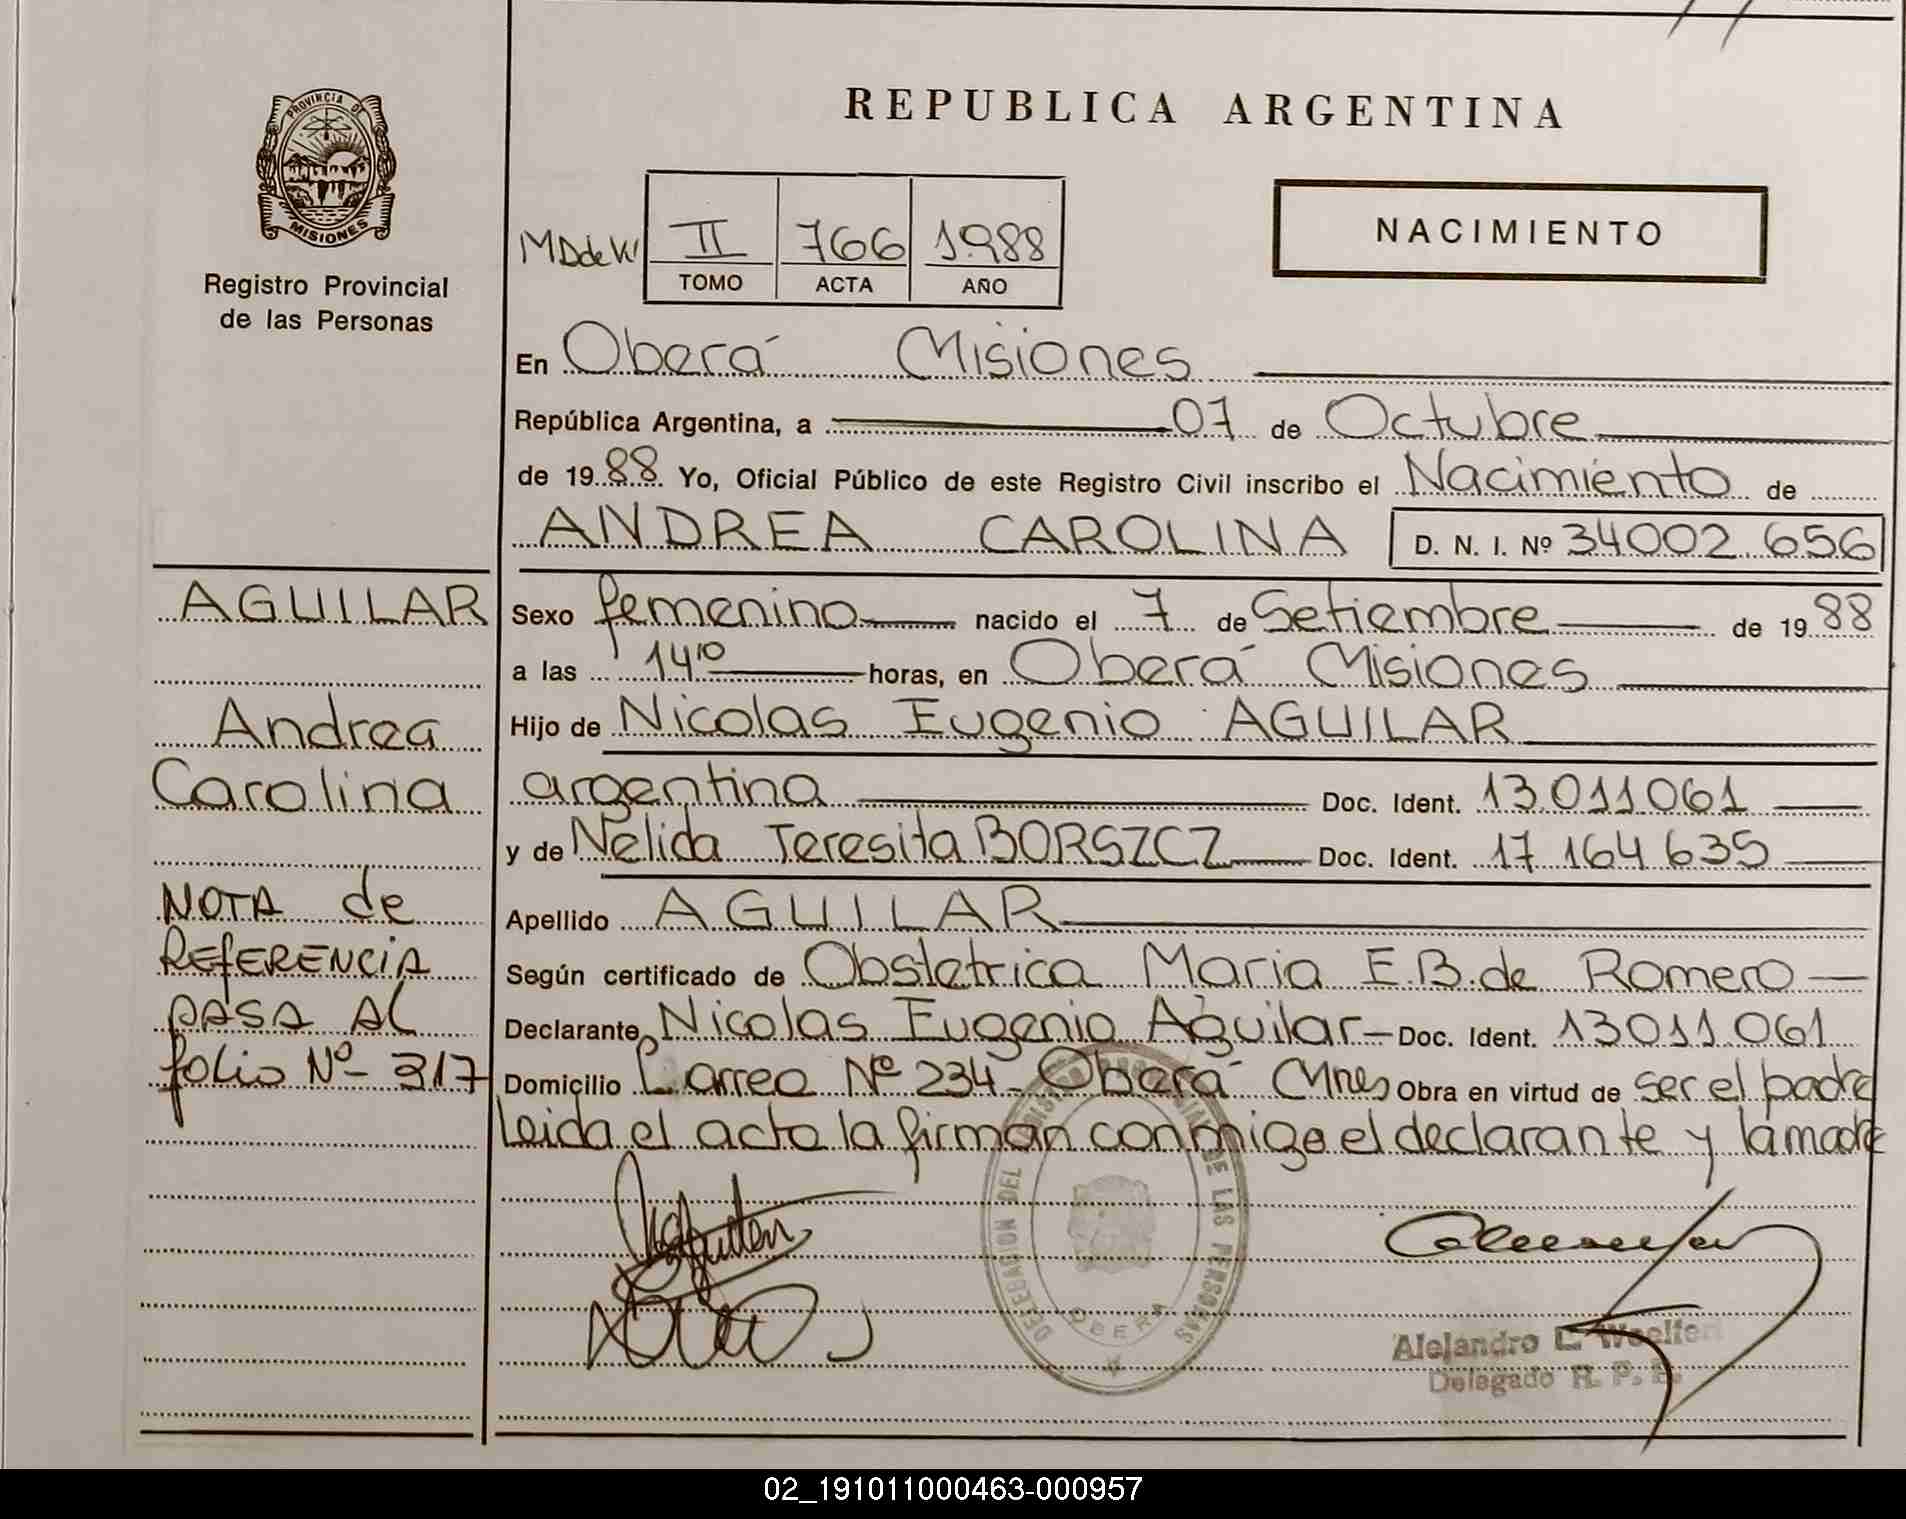 REPUBLICA ARGENTINA
PROVINCIA DE
MISIONES
Registro Provincial
de las Personas
MDdeW
II 766 1.988
TOMO ACTA AÑO
NACIMIENTO
En Oberá Misiones
República Argentina, a 07 de Octubre
de 19 88 Yo, Oficial Público de este Registro Civil inscribo el Nacimiento de
ANDREA CAROLINA D. N. I. Nº 34002.656
Sexo femenino nacido el 7 de Setiembre de 19 88
a las 14 10 horas, en Oberá Misiones
Hijo de Nicolas Eugenio AGUILAR
argentina Doc. Ident. 13.011.061
y de Nelida Teresita BORSZCZ Doc. Ident. 17 164 635
Apellido AGUILAR
Según certificado de Obstetrica Maria E.B. de Romero
Declarante Nicolas Eugenio Aguilar Doc. Ident. 13011061
Domicilio Correo Nº 234 - Oberá Mnes Obra en virtud de ser el padre
Leida el acta la firman conmigo el declarante y la madre
AGUILAR
Andrea
Carolina
NOTA de
REfERENCiA
PASA AL
folio Nº 317
DELEGACION DEL REGISTRO PROVINCIAL DE LAS PERSONAS
OBERA
Alejandro L. Woelfert
Delegado R. P. P.
02_191011000463-000957